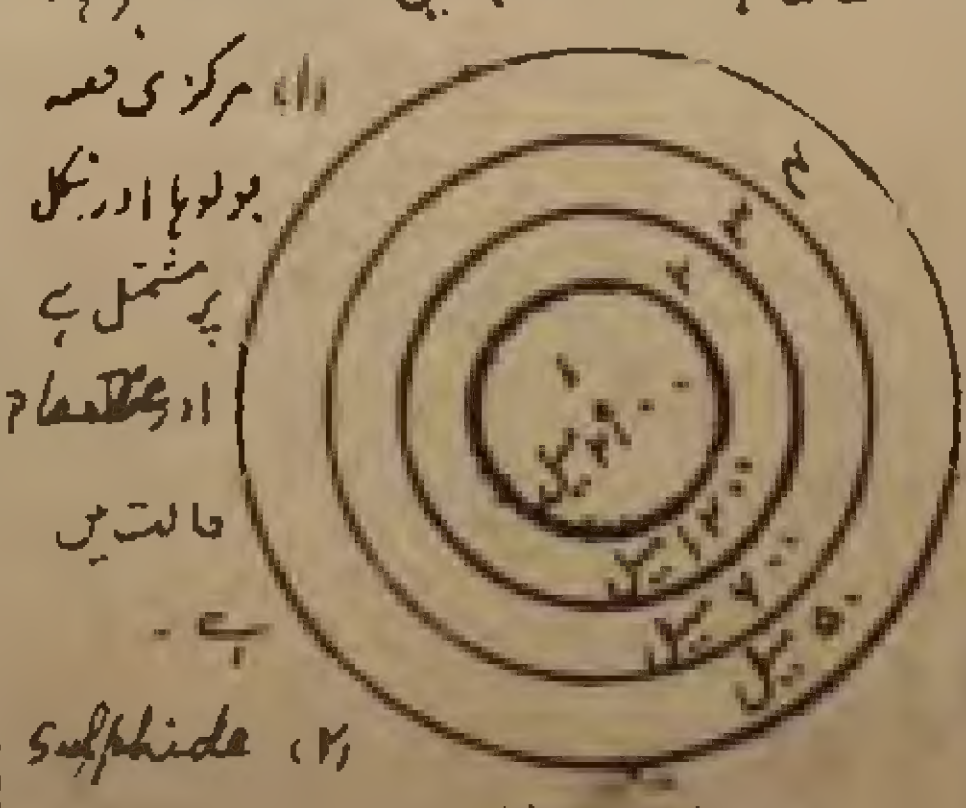 (۱) مرکزی حصہ
جو لوہا اور نکل
پر مشتمل ہے
اور
حالت میں
ہے -
(۲) Sulphide
۱
۲
۳
۴
میل
۱۲۰۰ میل
۷۰۰ میل
۵۰ میل